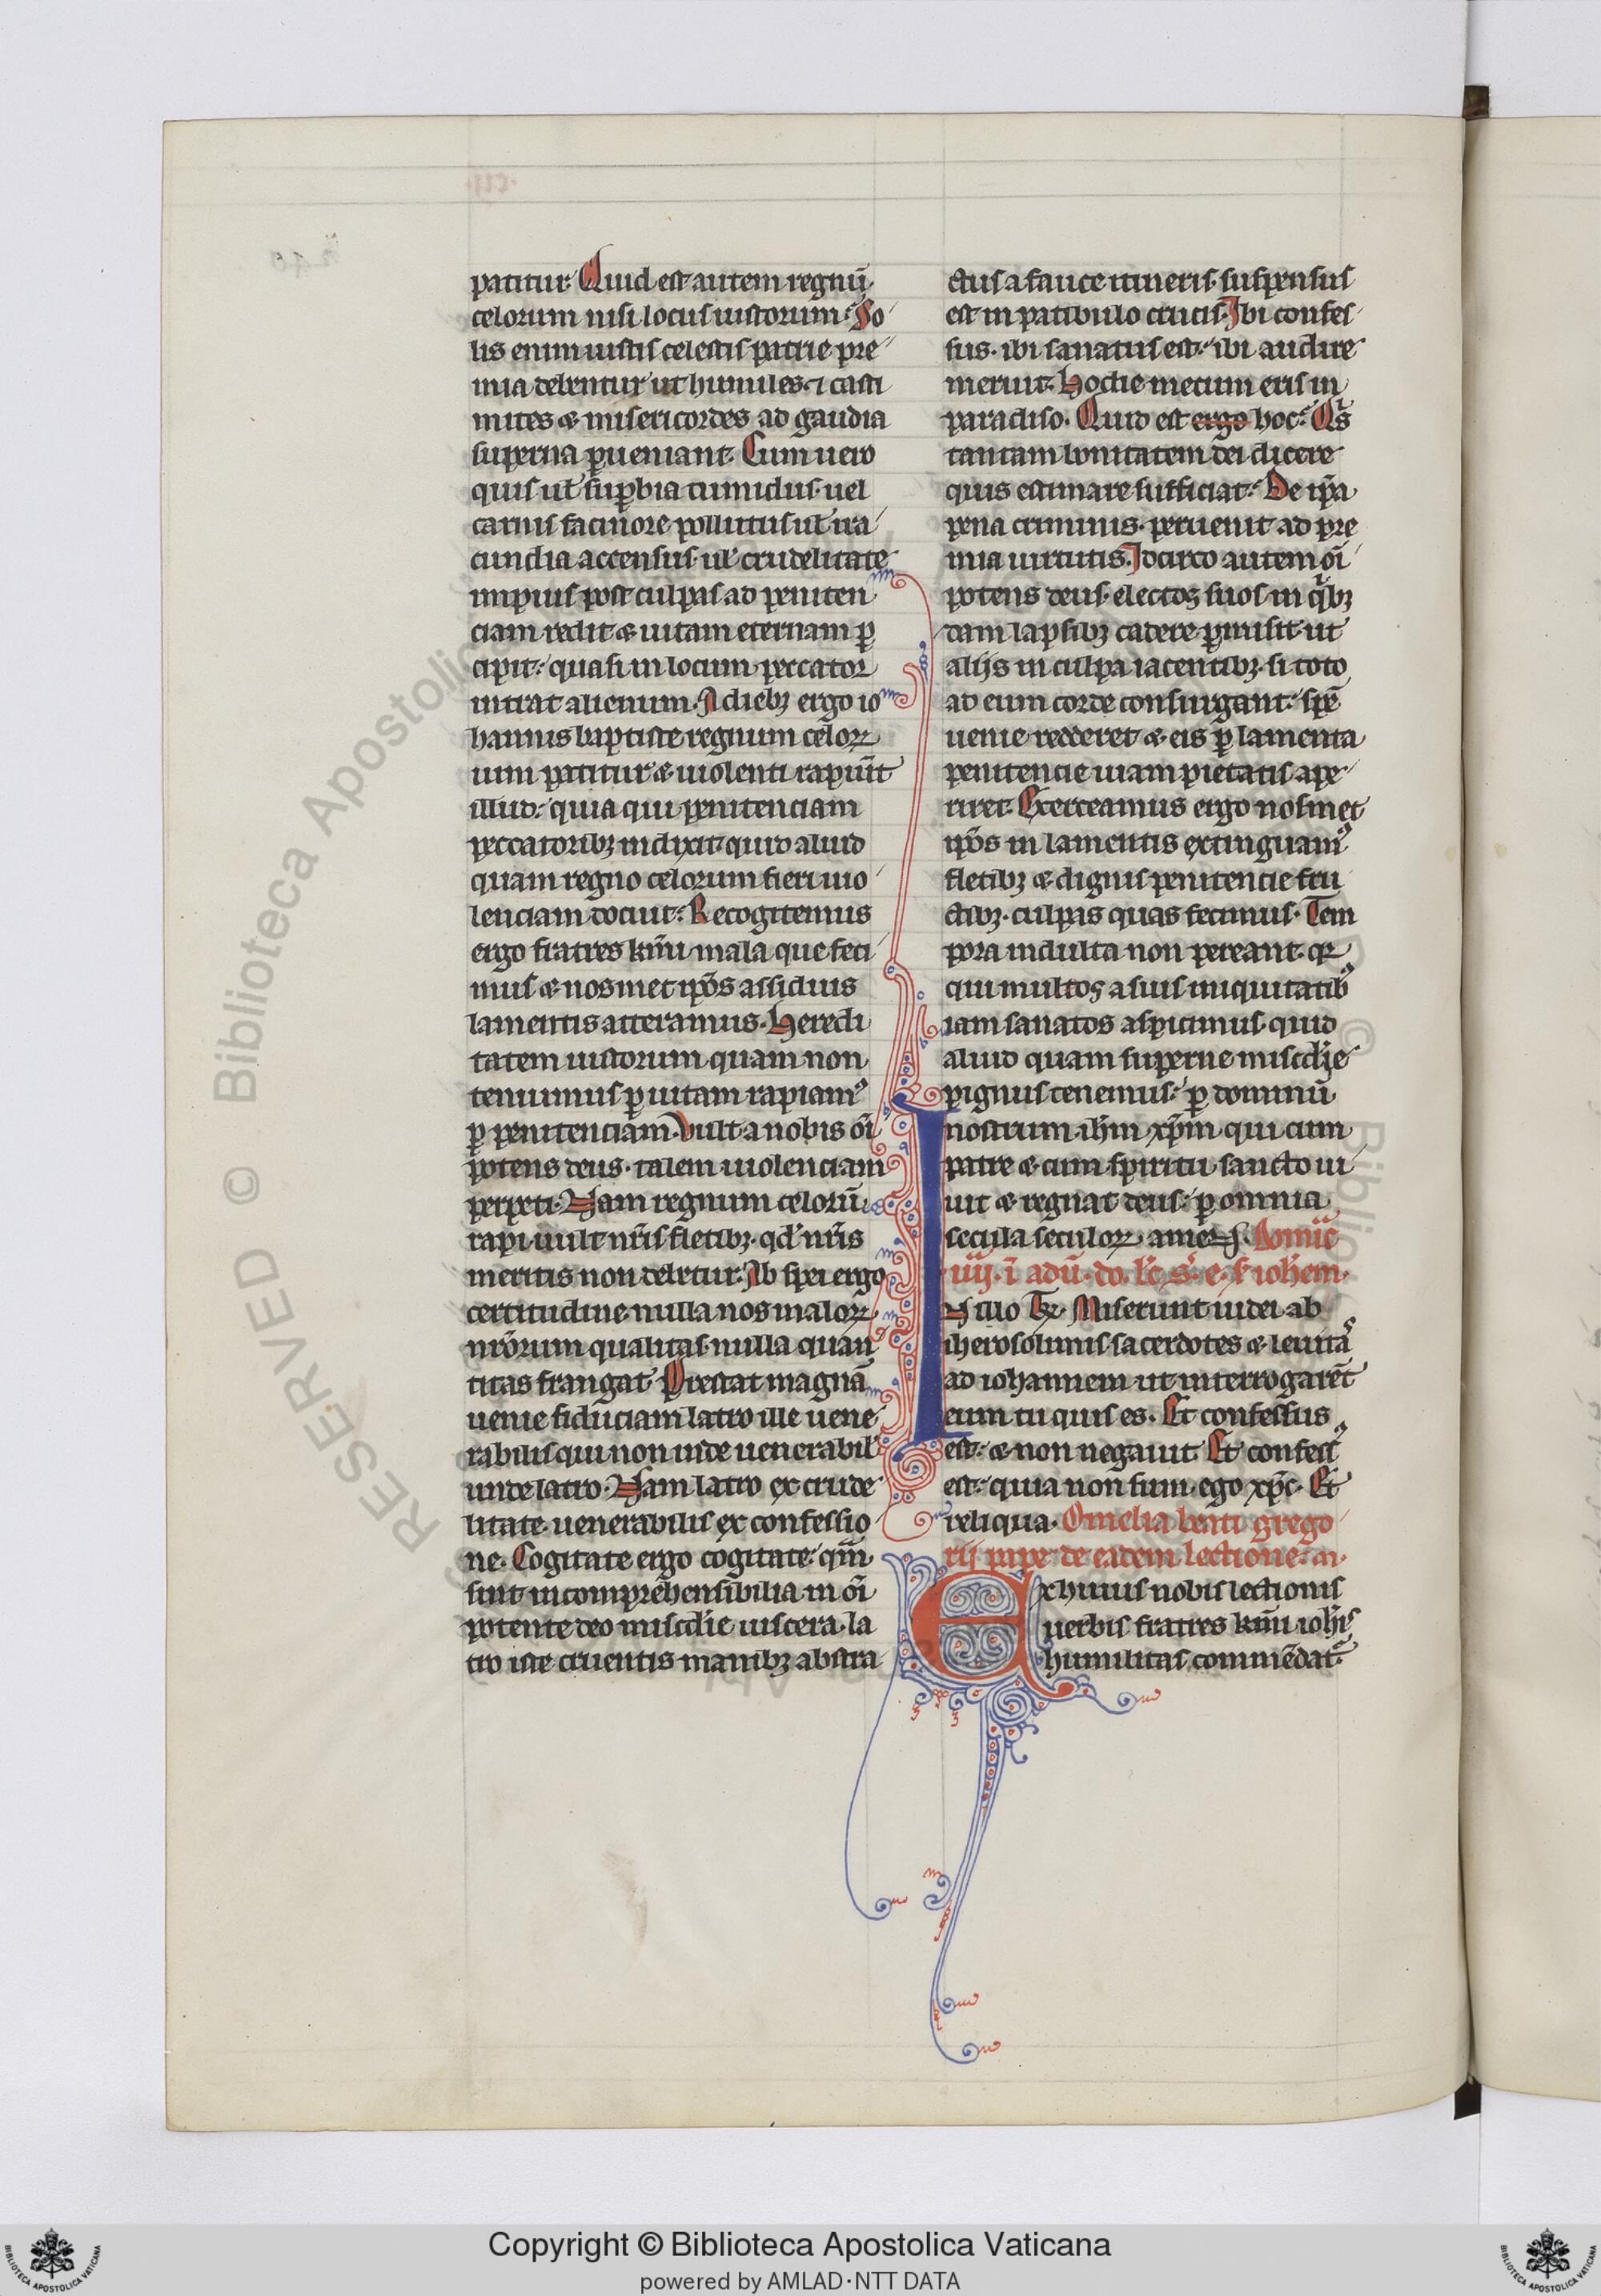 patitur. Quid est autem regnū
celorum nisi locus iustorum? So
lis enim iustis celestis patrie pre
mia debentur ut humiles ⁊ casti
mites & misericordes ad gaudia
superna ꝑueniant. Cum uero
quis ul̓ suꝑbia tumidus uel
carnis facinore pollutus ul̓ ira
cundia accensus ul̓ crudelitate
impius post culpas ad peniten
ciam redit & uitam eternam ꝑ
cipit: quasi in locum peccator
intrat alienum. A diebꝫ ergo io
hannis baptiste regnum celoꝝ
uim patitur & uiolenti rapiūt
illud: quia qui penitenciam
peccatoribꝫ indixit quid aliud
quam regno celorum fieri uio
lenciam docuit? Recogitemus
ergo fratres kmī mala que feci
mus & nosmet ip̄os assiduis
lamentis atteramus. Heredi
tatem iustorum quam non
tenuimus ꝑ uitam rapiamꝰ
ꝑ penitenciam. Vult a nobis oī
potens deus talem uiolenciam
perpeti. Nam regnum celorū
rapi uult nr̄is fletibꝫ qd̓ nr̄is
meritis non debetur. Ab spei ergo
certitudine nulla nos maloꝝ
nr̄orum qualitas nulla quan
titas frangat. Prestat magnā
uenie fiduciam latro ille uene
rabilis qui non inde uenerabil̓
unde latro. Nam latro ex crude
litate uenerabilis ex confessio
ne. Cogitate ergo cogitate qm̄
sint incomprehensibilia in oī
potente deo misc̄die uiscera. la
tro iste cruentis manibꝫ abstra
ctus a fauce itineris suspensus
est in patibulo crucis. Ibi confes
sus. ibi sanatus est. ibi audire
meruit. Hodie mecum eris in
paradiso. Quid est ergo hoc? Qͥs
tantam bonitatem dei dicere
quis estimare sufficiat? De ip̄a
pena criminis peruenit ad pre
mia uirtutis. Idcirco autem oī
potens deus electos suos in qͥbꝫ
dam lapsibꝫ cadere ꝑmisit ut
alijs in culpa iacentibꝫ si toto
ad eum corde consurgant spē
uenie redderet & eis ꝑ lamenta
penitencie uiam pietatis ape
riret. Exerceamus ergo nosmet
ip̄os in lamentis extinguamꝰ
fletibꝫ & dignis penitencie fru
ctibꝫ culpas quas fecimus. Tem
pora indulta non pereant. qꝛ
qui multos a suis iniquitatibꝰ
iam sanatos aspicimus quid
aliud quam superne misc̄die
pignus tenemus? ꝑ dominū
nostrum ih̄m xp̄m qui cum
patre & cum spiritu sancto ui
uit & regnat deus ꝑ omnia
secula seculoꝝ amen. Domīc
iiij. ī adū. do. lc̄ s̄. e. s̄ ioh̄em.
In illo Tꝑ. Miserunt iudei ab
iherosolimis sacerdotes & leuitaˢ
ad iohannem ut interrogarēt
eum tu quis es. Et confessus
est & non negauit. Et confesꝰ
est: quia non sum ego xp̄c. Et
reliqua. Omelia beati grego
rij pape de eadem lectione.
Ex huius nobis lectionis
uerbis fratres kmī ioh̄is
humilitas commēdat̓.
RESERVED © Biblioteca Apostolica
© Biblio
Copyright © Biblioteca Apostolica Vaticana
powered by AMLAD·NTT DATA
BIBLIOTECA APOSTOLICA VATICANA
BIBLIOTECA APOSTOLICA VATICANA